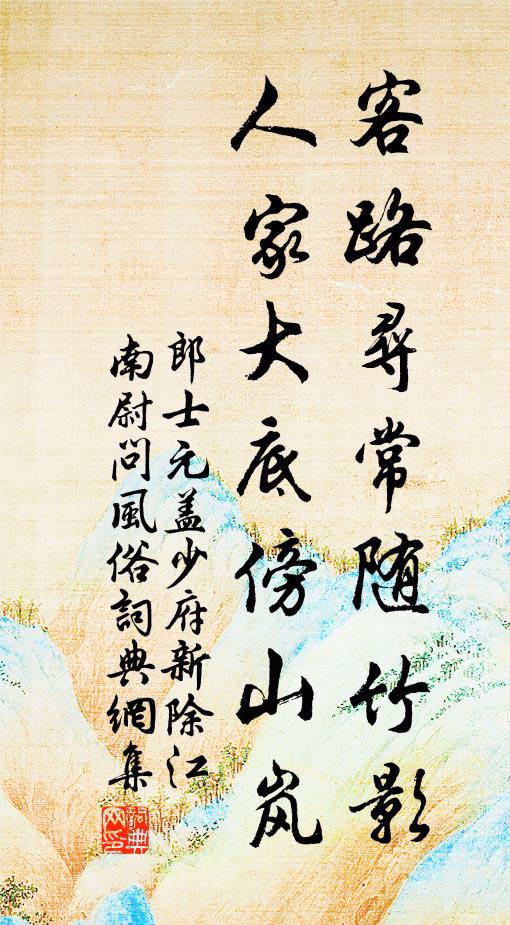 客路尋常随竹影
人家大底傍山岚
郎士元盖少府新除江
南尉問風俗詞典網集
詞典网印